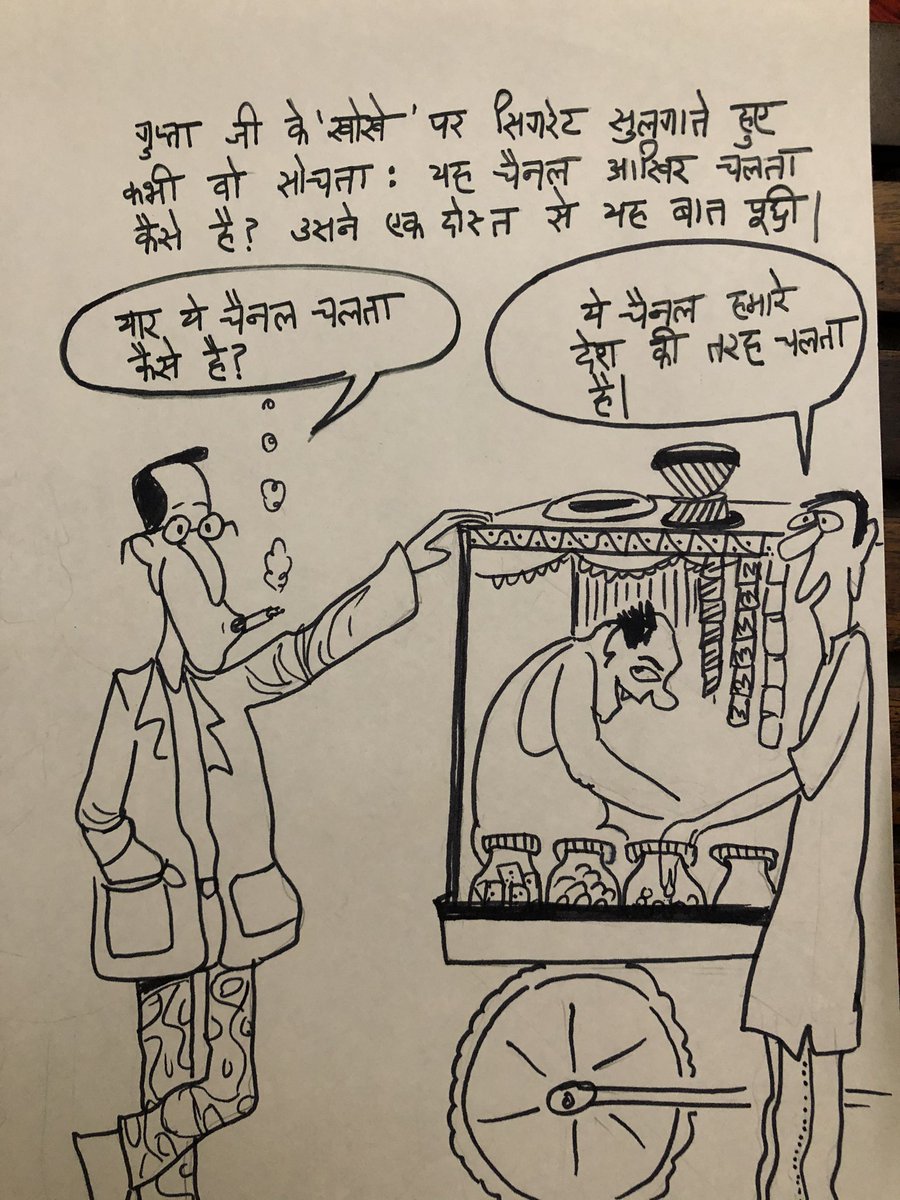 गुप्ता जी के 'खोखे' पर सिगरेट सुलगाते हुए
कभी वो सोचता : यह चैनल आखिर चलता
कैसे है? उसने एक दोस्त से यह बात पूछी।
यार ये चैनल चलता
कैसे है?
ये चैनल हमारे
देश की तरह चलता
है।